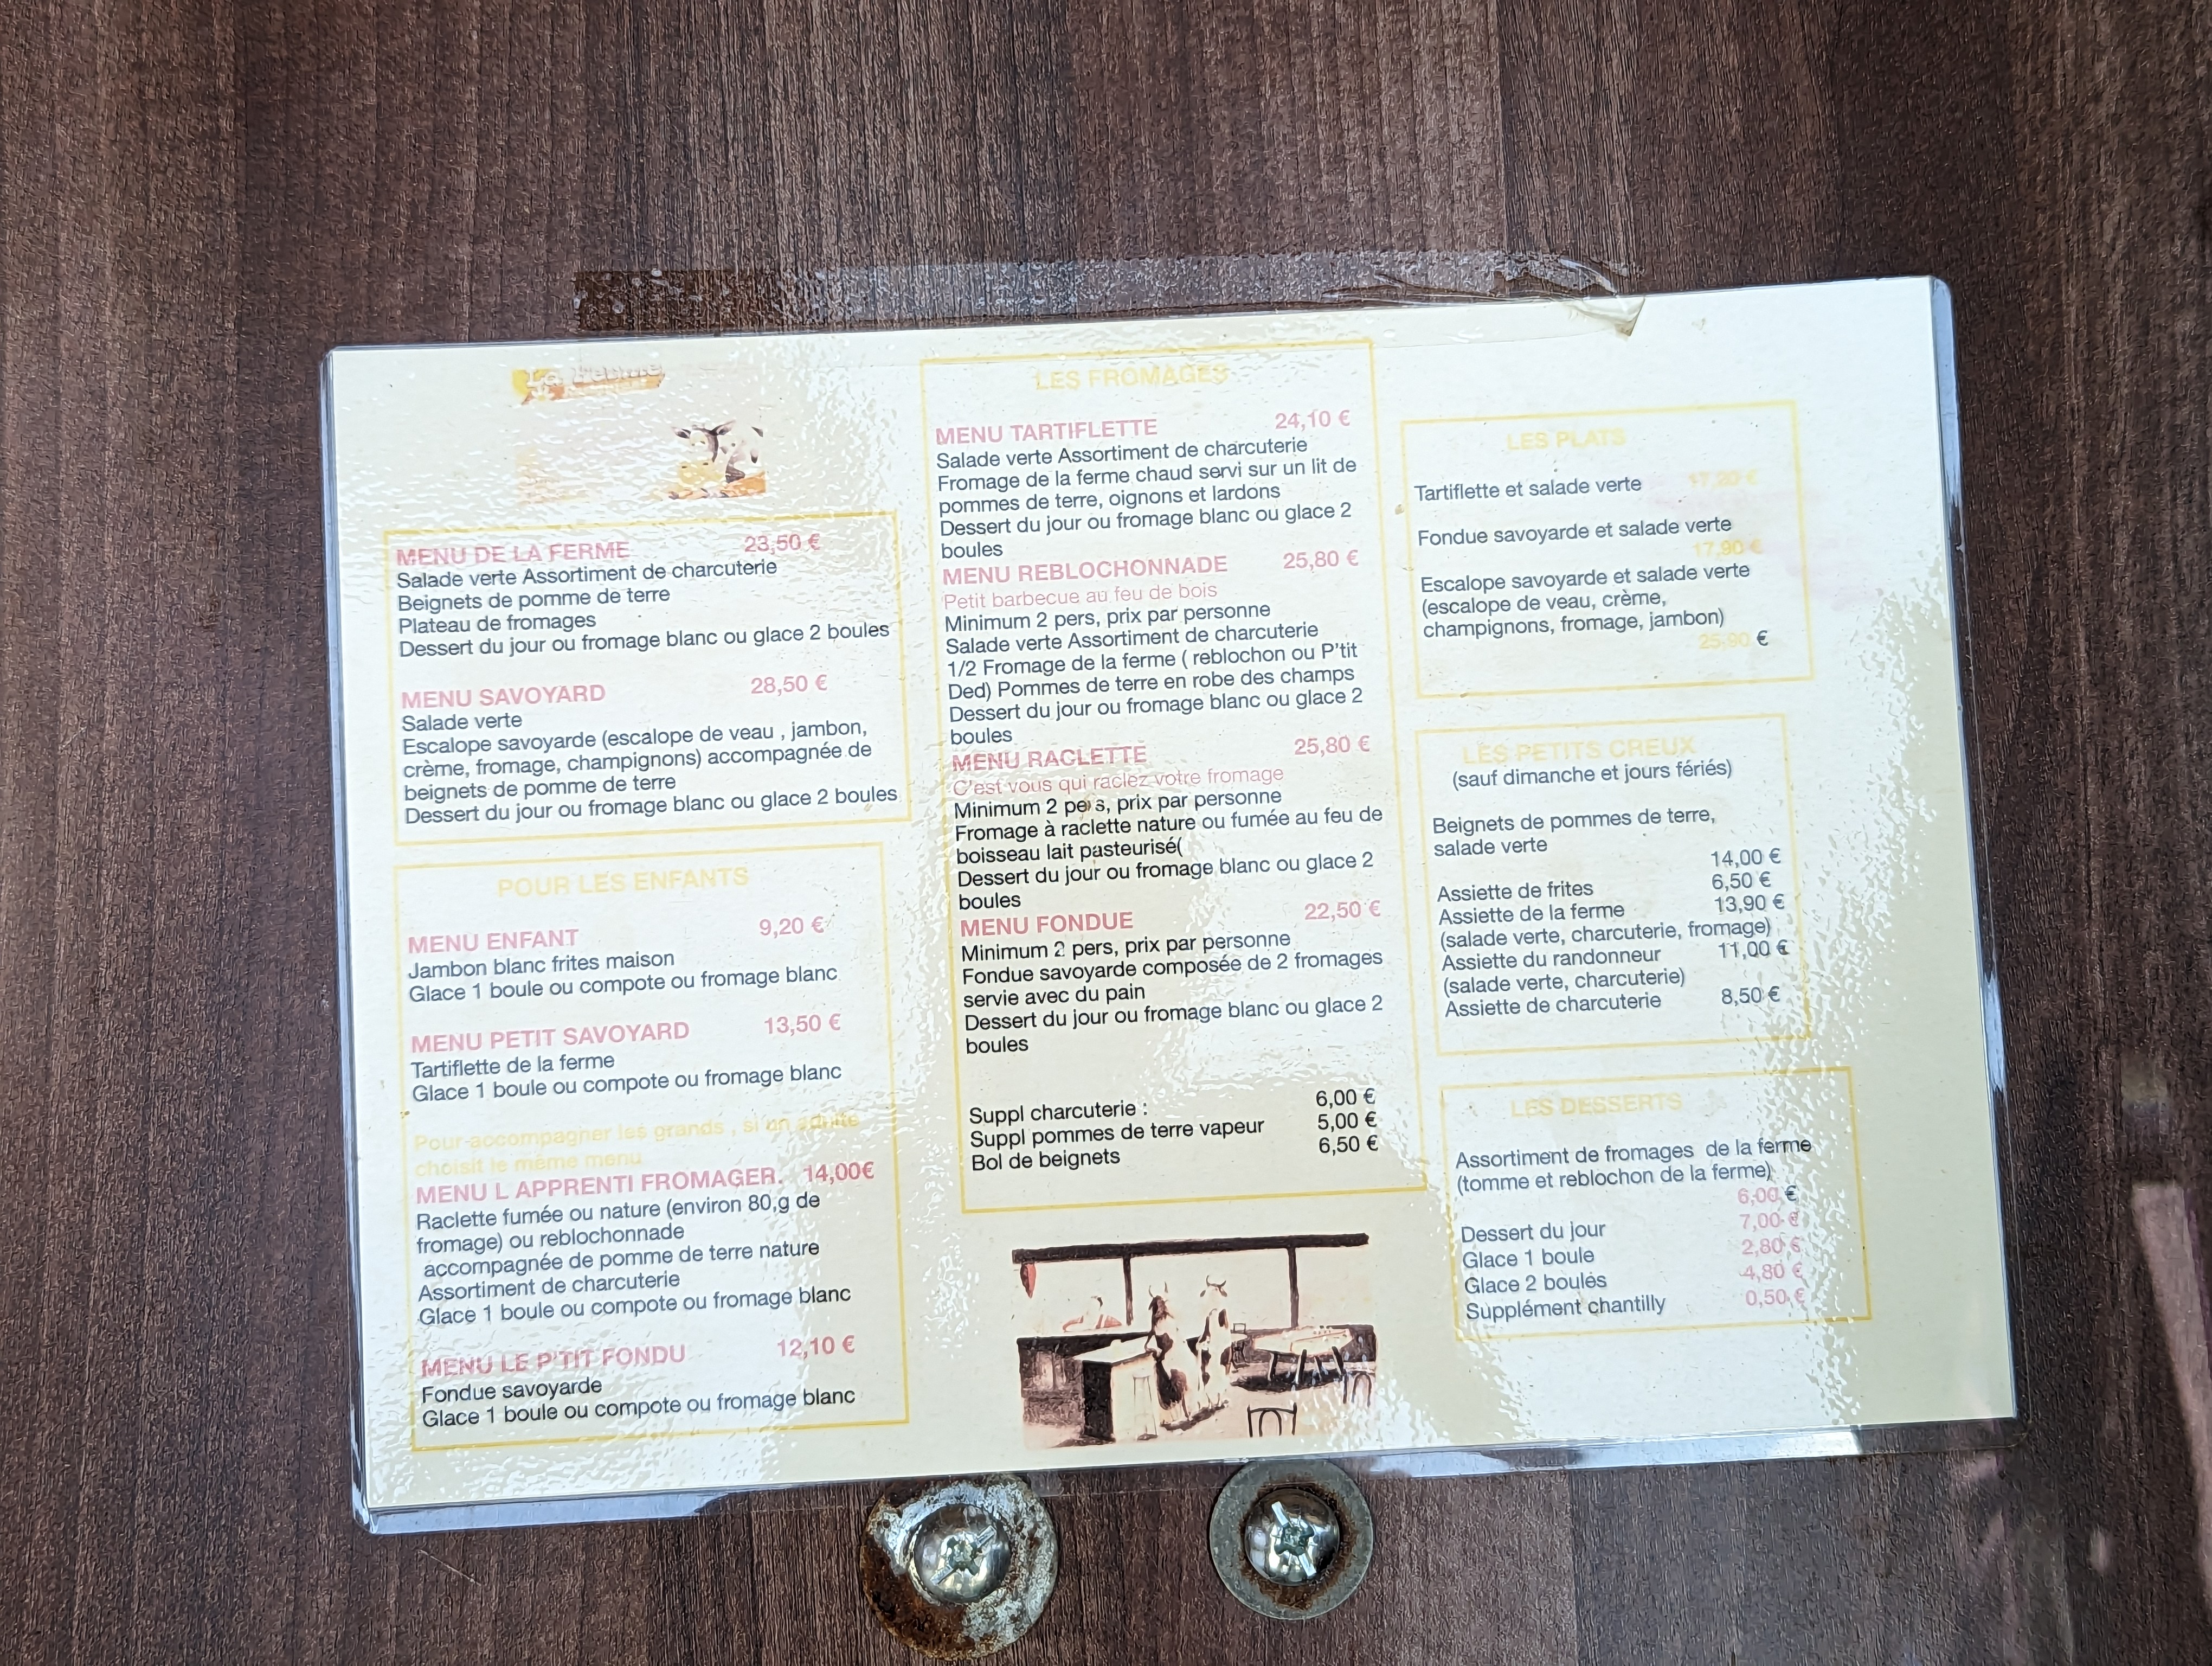 La Ferme
MENU DE LA FERME 23,50 €
Salade verte Assortiment de charcuterie
Beignets de pomme de terre
Plateau de fromages
Dessert du jour ou fromage blanc ou glace 2 boules
MENU SAVOYARD 28,50 €
Salade verte
Escalope savoyarde (escalope de veau , jambon,
crème, fromage, champignons) accompagnée de
beignets de pomme de terre
Dessert du jour ou fromage blanc ou glace 2 boules
POUR LES ENFANTS
MENU ENFANT 9,20 €
Jambon blanc frites maison
Glace 1 boule ou compote ou fromage blanc
MENU PETIT SAVOYARD 13,50 €
Tartiflette de la ferme
Glace 1 boule ou compote ou fromage blanc
Pour accompagner les grands , si un adulte
choisit le même menu
MENU L APPRENTI FROMAGER. 14,00€
Raclette fumée ou nature (environ 80,g de
fromage) ou reblochonnade
accompagnée de pomme de terre nature
Assortiment de charcuterie
Glace 1 boule ou compote ou fromage blanc
MENU LE P'TIT FONDU 12,10 €
Fondue savoyarde
Glace 1 boule ou compote ou fromage blanc
LES FROMAGES
MENU TARTIFLETTE 24,10 €
Salade verte Assortiment de charcuterie
Fromage de la ferme chaud servi sur un lit de
pommes de terre, oignons et lardons
Dessert du jour ou fromage blanc ou glace 2
boules
MENU REBLOCHONNADE 25,80 €
Petit barbecue au feu de bois
Minimum 2 pers, prix par personne
Salade verte Assortiment de charcuterie
1/2 Fromage de la ferme ( reblochon ou P'tit
Ded) Pommes de terre en robe des champs
Dessert du jour ou fromage blanc ou glace 2
boules
MENU RACLETTE 25,80 €
C'est vous qui raclez votre fromage
Minimum 2 pers, prix par personne
Fromage à raclette nature ou fumée au feu de
boisseau lait pasteurisé(
Dessert du jour ou fromage blanc ou glace 2
boules
MENU FONDUE 22,50 €
Minimum 2 pers, prix par personne
Fondue savoyarde composée de 2 fromages
servie avec du pain
Dessert du jour ou fromage blanc ou glace 2
boules
Suppl charcuterie : 6,00 €
Suppl pommes de terre vapeur 5,00 €
Bol de beignets 6,50 €
LES PLATS
Tartiflette et salade verte 17,20 €
Fondue savoyarde et salade verte
17,90 €
Escalope savoyarde et salade verte
(escalope de veau, crème,
champignons, fromage, jambon)
25,90 €
LES PETITS CREUX
(sauf dimanche et jours fériés)
Beignets de pommes de terre,
salade verte
14,00 €
Assiette de frites 6,50 €
Assiette de la ferme 13,90 €
(salade verte, charcuterie, fromage)
Assiette du randonneur 11,00 €
(salade verte, charcuterie)
Assiette de charcuterie 8,50 €
LES DESSERTS
Assortiment de fromages de la ferme
(tomme et reblochon de la ferme)
6,00 €
Dessert du jour 7,00 €
Glace 1 boule 2,80 €
Glace 2 boules 4,80 €
Supplément chantilly 0,50 €